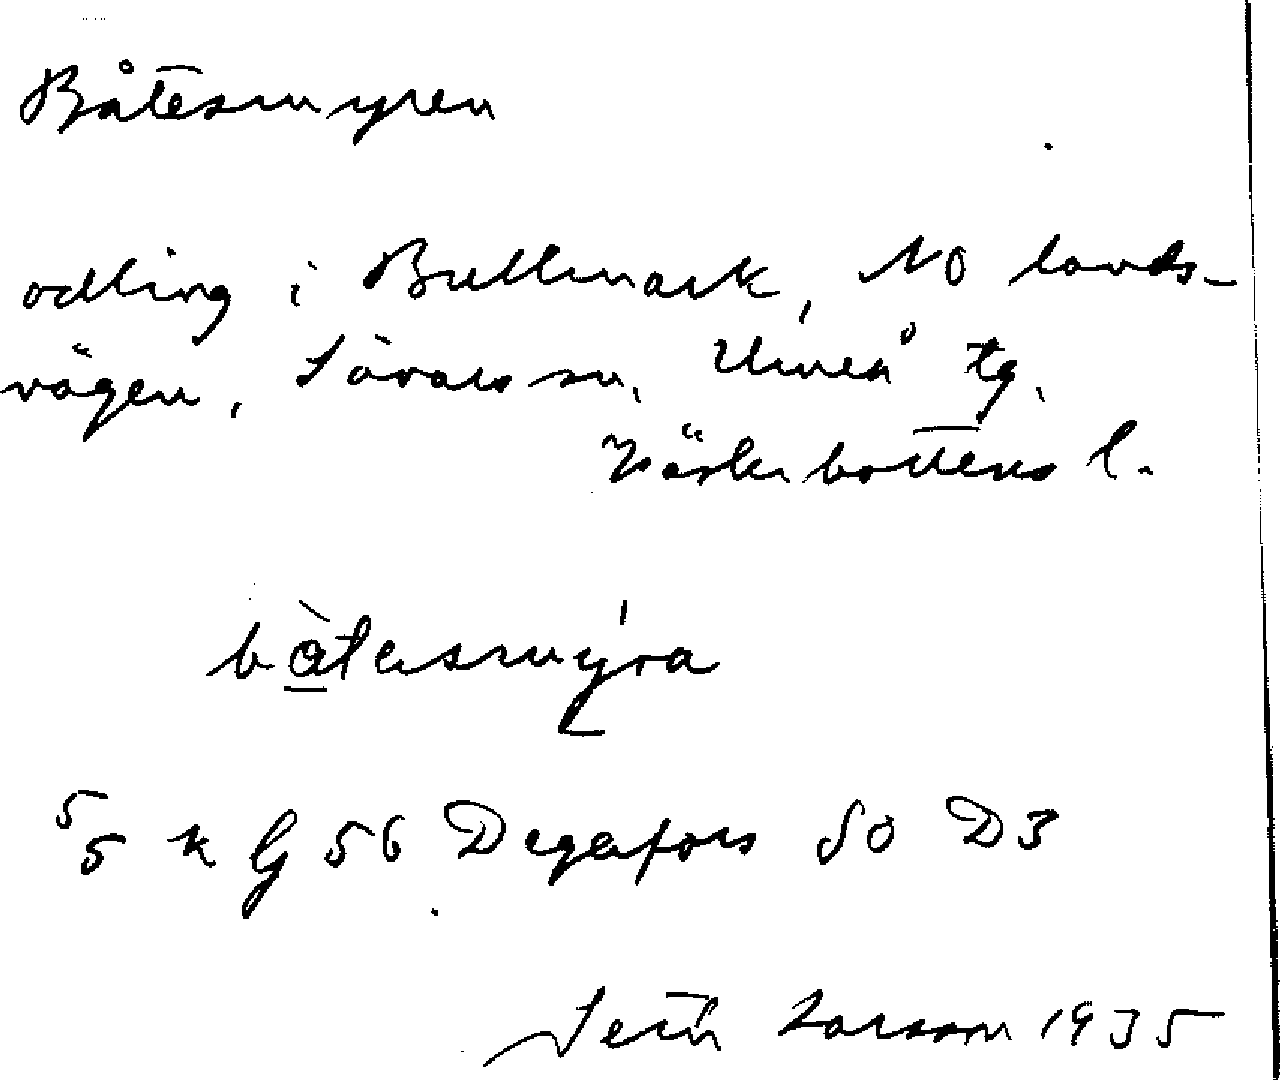 Båtesmyren
odling i Bullmark, NO lands-
vägen, Sävars sn, Umeå tg.
Västerbottens l.
bàtesmy̔ra
5/5 k G 56 Degerfors SO D3
Larsson 1935